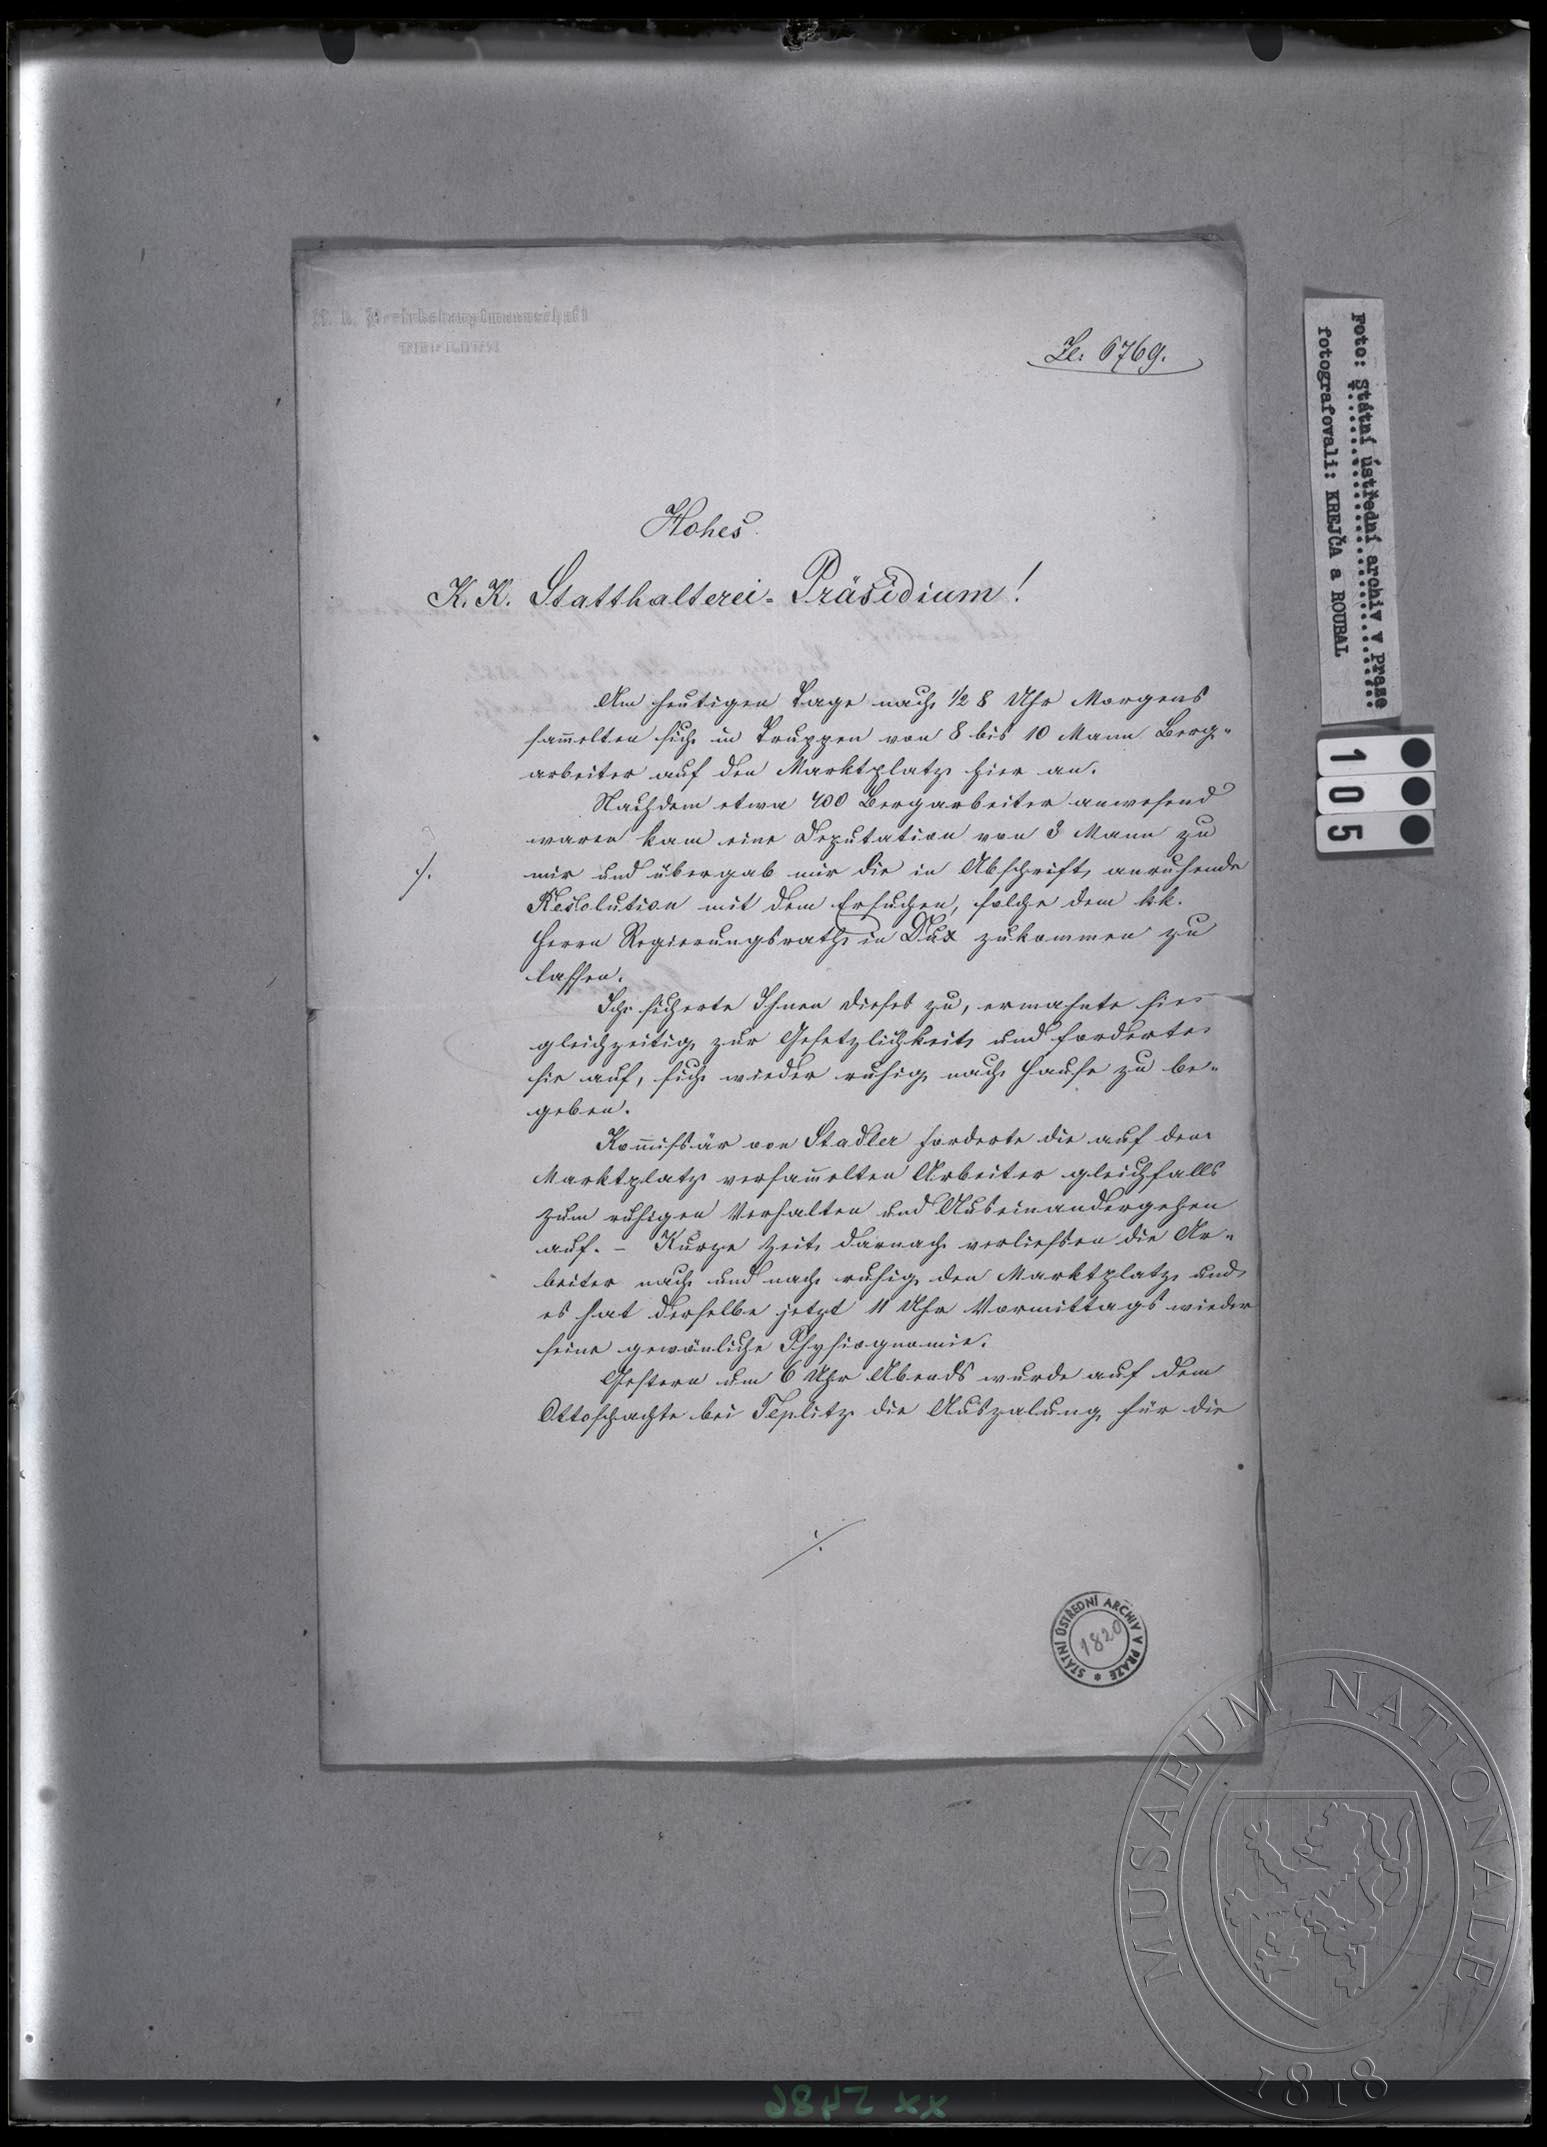 K. k. Bezirkshauptmannschaft
Zl: 6769.
Hohes
K. K. Statthalterei-Präsidium!
Am heutigen Tage nach 1/2 8 Uhr Morgens
sam̄elten sich in Truppen von 8 bis 10 Mann Berg-
arbeiter auf den Marktplatz hier an.
Nachdem etwa 400 Bergarbeiter anwesend
waren kam eine Deputation von 3 Mann zu
./.
mir und übergab mir die in Abschrift anruhende
Resolution mit dem Ersuchen, solche dem kk.
Herrn Regierungsrath in Dux zukommen zu
lassen.
Ich sicherte Ihnen dieses zu, ermahnte sie
gleichzeitig zur Gesetzlichkeit und forderte
sie auf, sich wieder ruhig nach Hause zu be-
geben.
Kom̄issär von Stadler forderte die auf dem
Marktplatz versam̄elten Arbeiter gleichfalls
zum ruhigen Verhalten und Auseinandergehen
auf. – Kurze Zeit darnach verliessen die Ar-
beiter nach und nach ruhig den Marktplatz und
es hat derselbe jetzt 11 Uhr Vormittags wieder
seine gewönliche Physiognomie.
Gestern um 6 Uhr Abends wurde auf dem
Ottoschachte bei Teplitz die Auszalung für die
./.
STÁTNÍ ÚSTŘEDNÍ ARCHIV V PRAZE
1820
Foto: Státní ústřední archiv v Praze
fotografovali: KREJČA a ROUBAL
105
MUSAEUM NATIONALE
1818